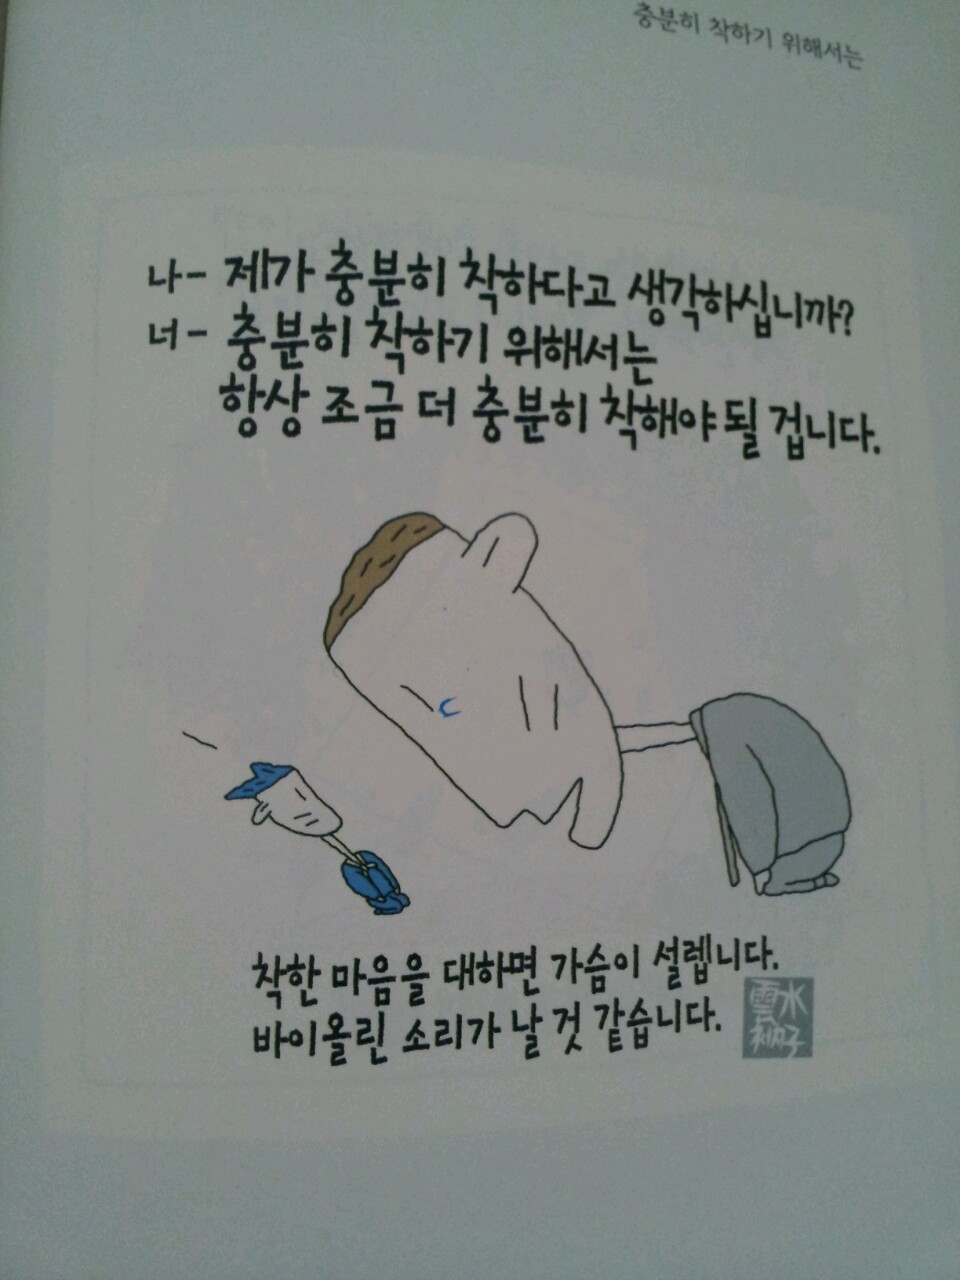 충분히 착하기 위해서는
나- 제가 충분히 착하다고 생각하십니까?
너- 충분히 착하기 위해서는
항상 조금 더 충분히 착해야 될 겁니다.
착한 마음을 대하면 가슴이 설렙니다.
바이올린 소리가 날 것 같습니다.
雲水
衲子